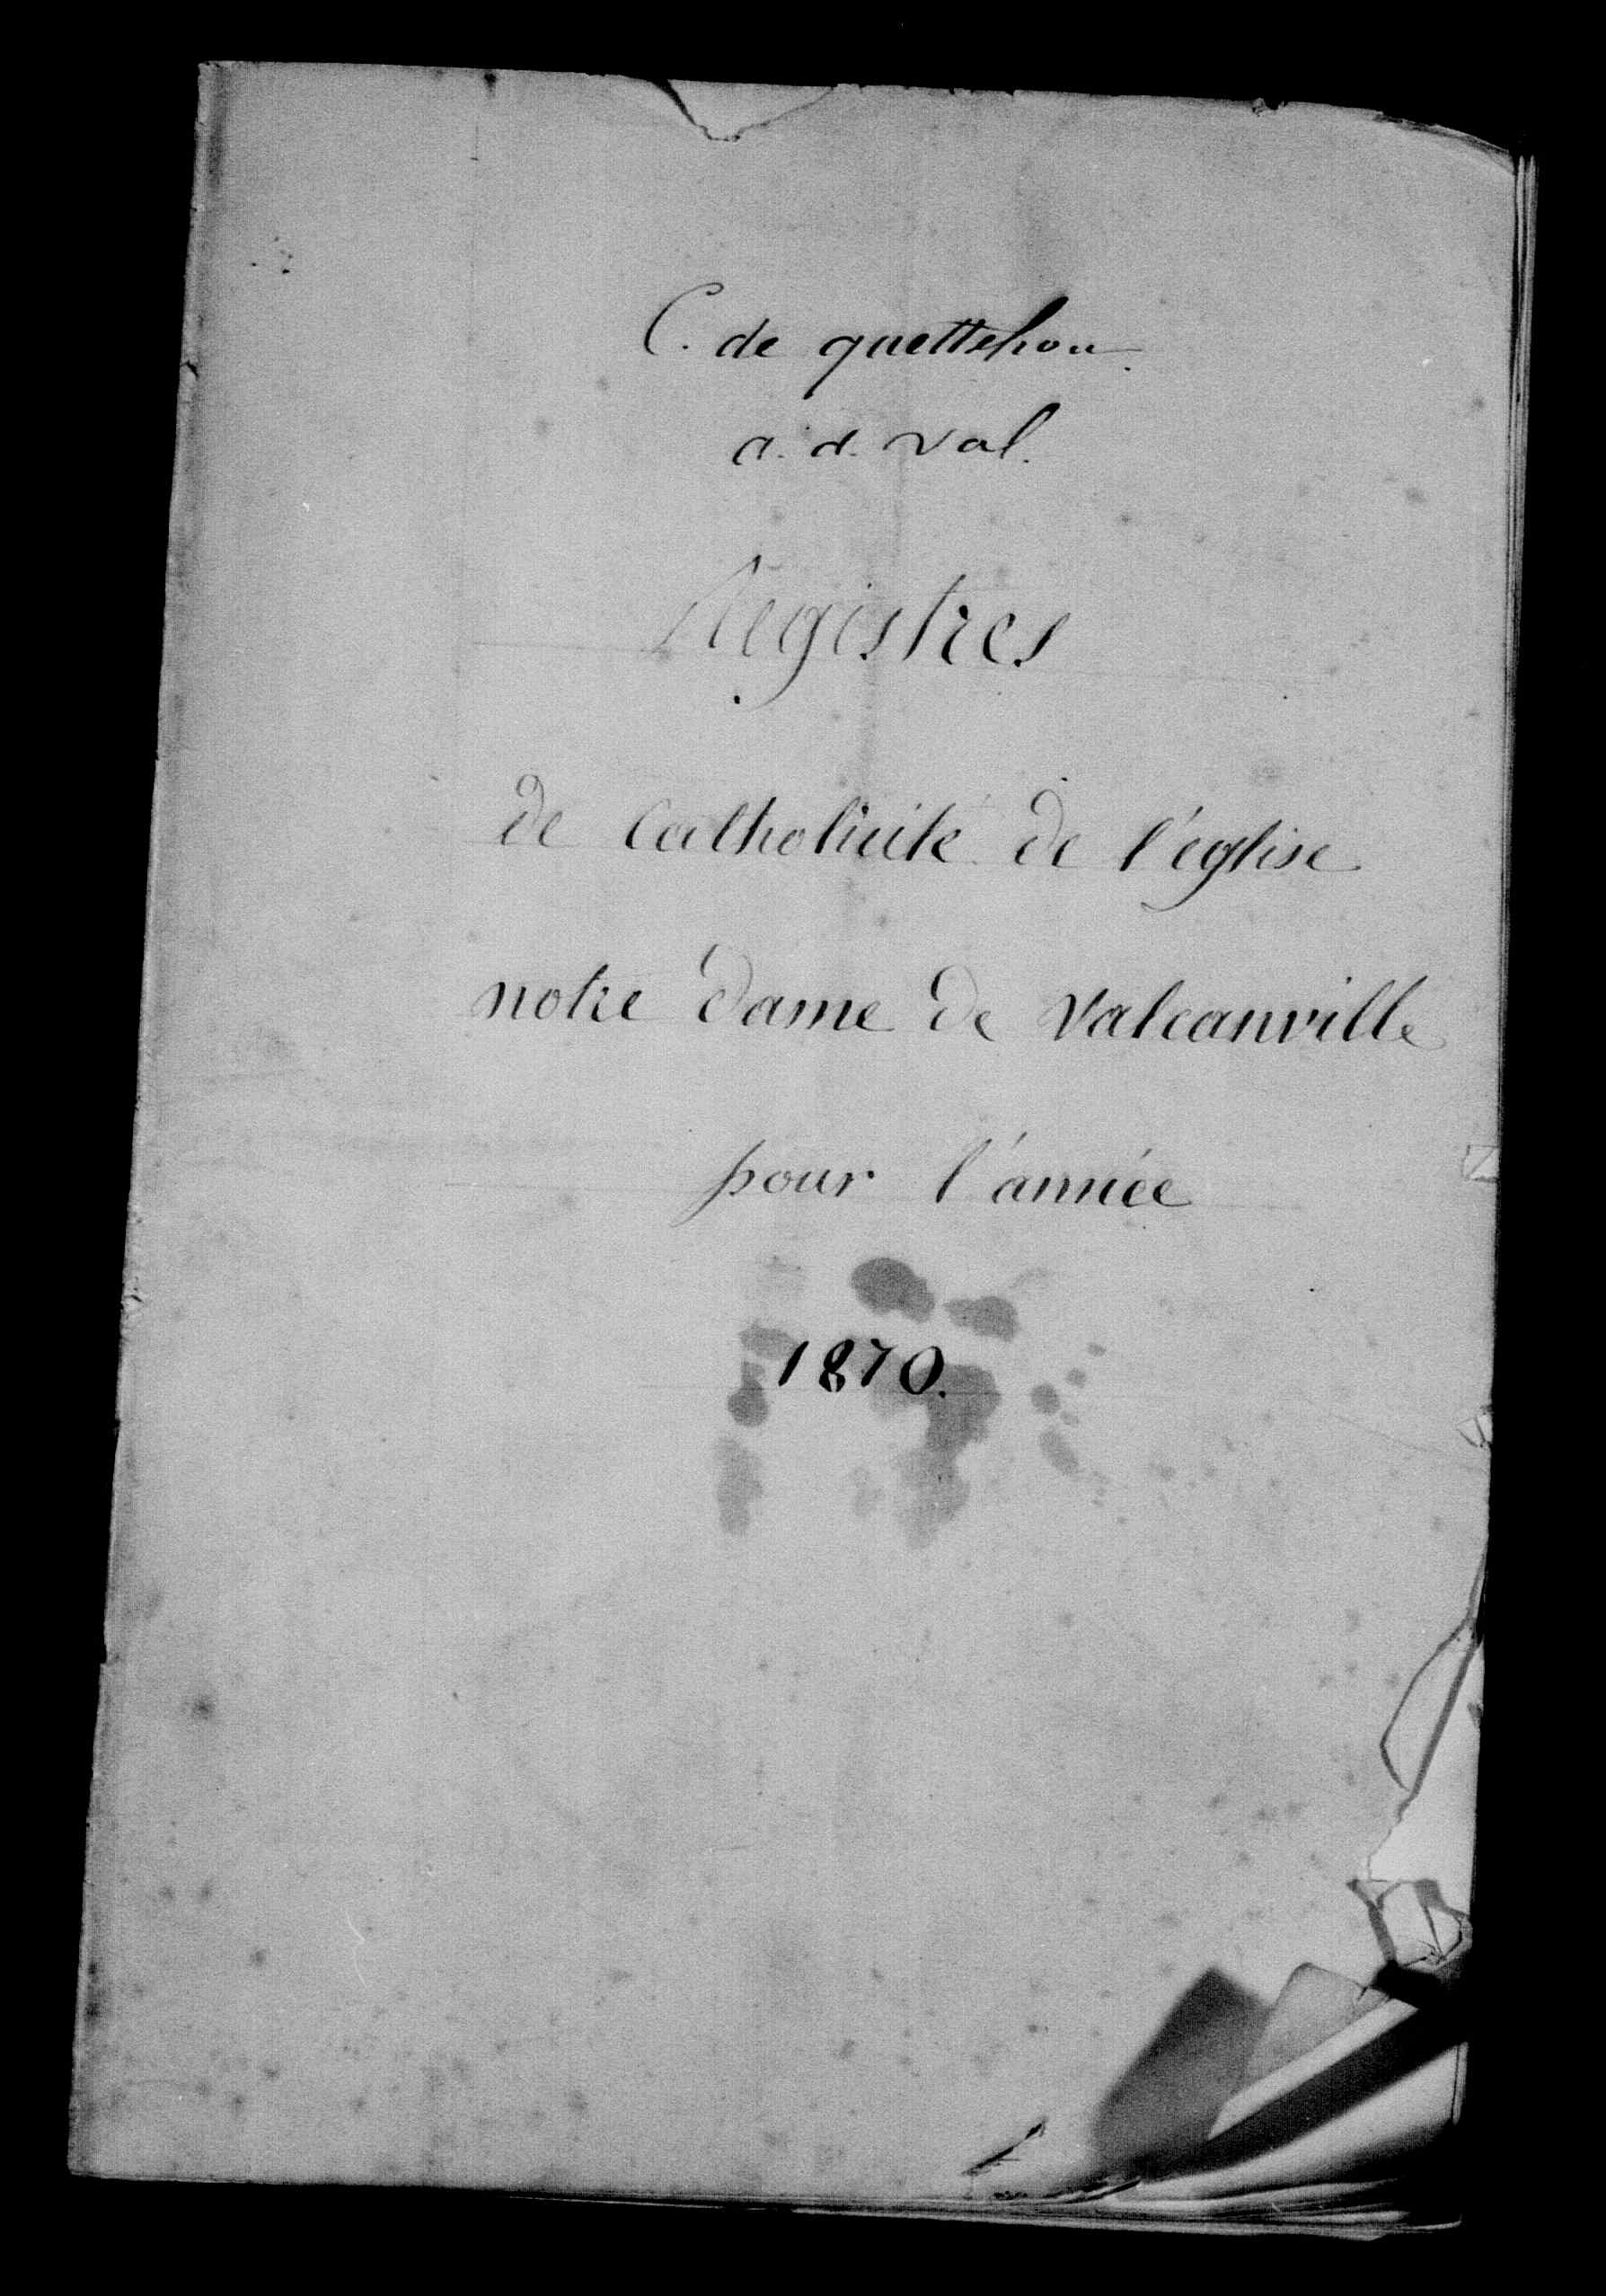 C. de quettehou.
a. d. Val.
Registres
de Catholicité de l'église
notre Dame de Valcanville
pour l'année
1870.